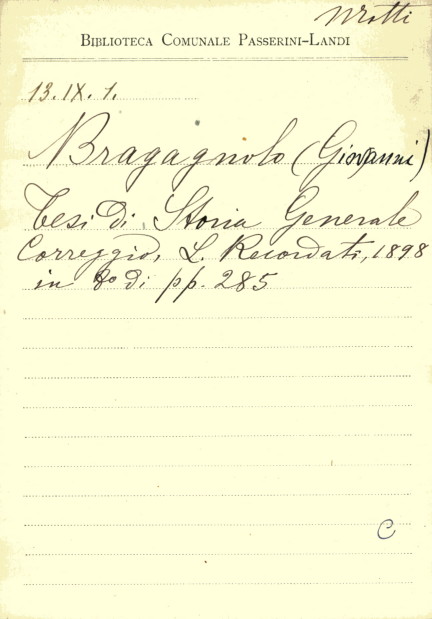 BIBLIOTECA COMUNALE PASSERINI-LANDI
13.IX.1.
Bragagnolo (Giovanni)
Tesi di Storia Generale
Correggio, L. Recordati, 1898
in 8º di pp. 285
C